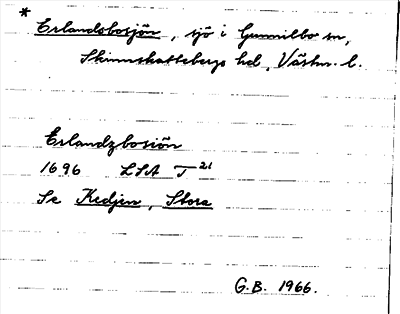 * Erlandsbosjön, sjö i Gunnilbo sn,
Skinnskattebergs hd, Västm. l.
Erlandzbosiön
1696 LSA T 21
Se Kedjen, Stora
G.B. 1966.